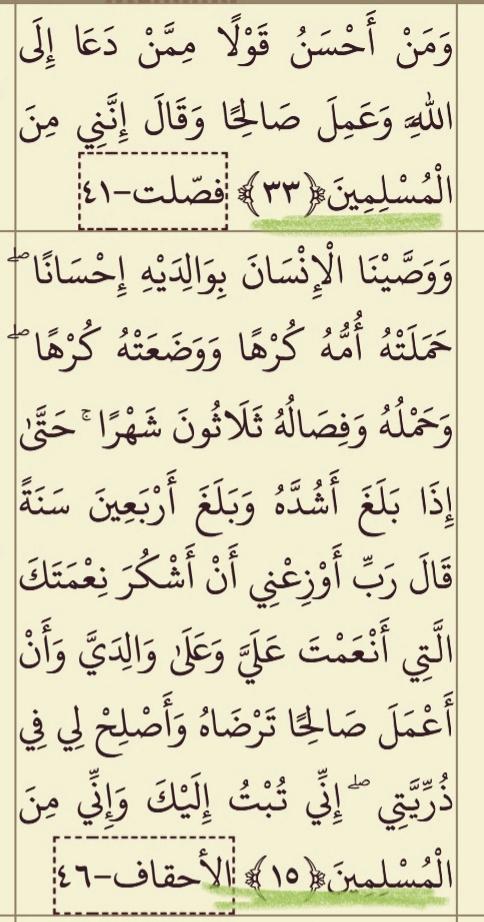 وَمَنْ أَحْسَنُ قَوْلًا مِمَّنْ دَعَا إِلَى
اللَّهِ وَعَمِلَ صَالِحًا وَقَالَ إِنَّنِي مِنَ
الْمُسْلِمِينَ ﴿٣٣﴾ فصّلت-٤١
وَوَصَّيْنَا الْإِنْسَانَ بِوَالِدَيْهِ إِحْسَانًا ۖ
حَمَلَتْهُ أُمُّهُ كُرْهًا وَوَضَعَتْهُ كُرْهًا ۖ
وَحَمْلُهُ وَفِصَالُهُ ثَلَاثُونَ شَهْرًا ۚ حَتَّىٰ
إِذَا بَلَغَ أَشُدَّهُ وَبَلَغَ أَرْبَعِينَ سَنَةً
قَالَ رَبِّ أَوْزِعْنِي أَنْ أَشْكُرَ نِعْمَتَكَ
الَّتِي أَنْعَمْتَ عَلَيَّ وَعَلَىٰ وَالِدَيَّ وَأَنْ
أَعْمَلَ صَالِحًا تَرْضَاهُ وَأَصْلِحْ لِي فِي
ذُرِّيَّتِي ۖ إِنِّي تُبْتُ إِلَيْكَ وَإِنِّي مِنَ
الْمُسْلِمِينَ ﴿١٥﴾ الأحقاف-٤٦